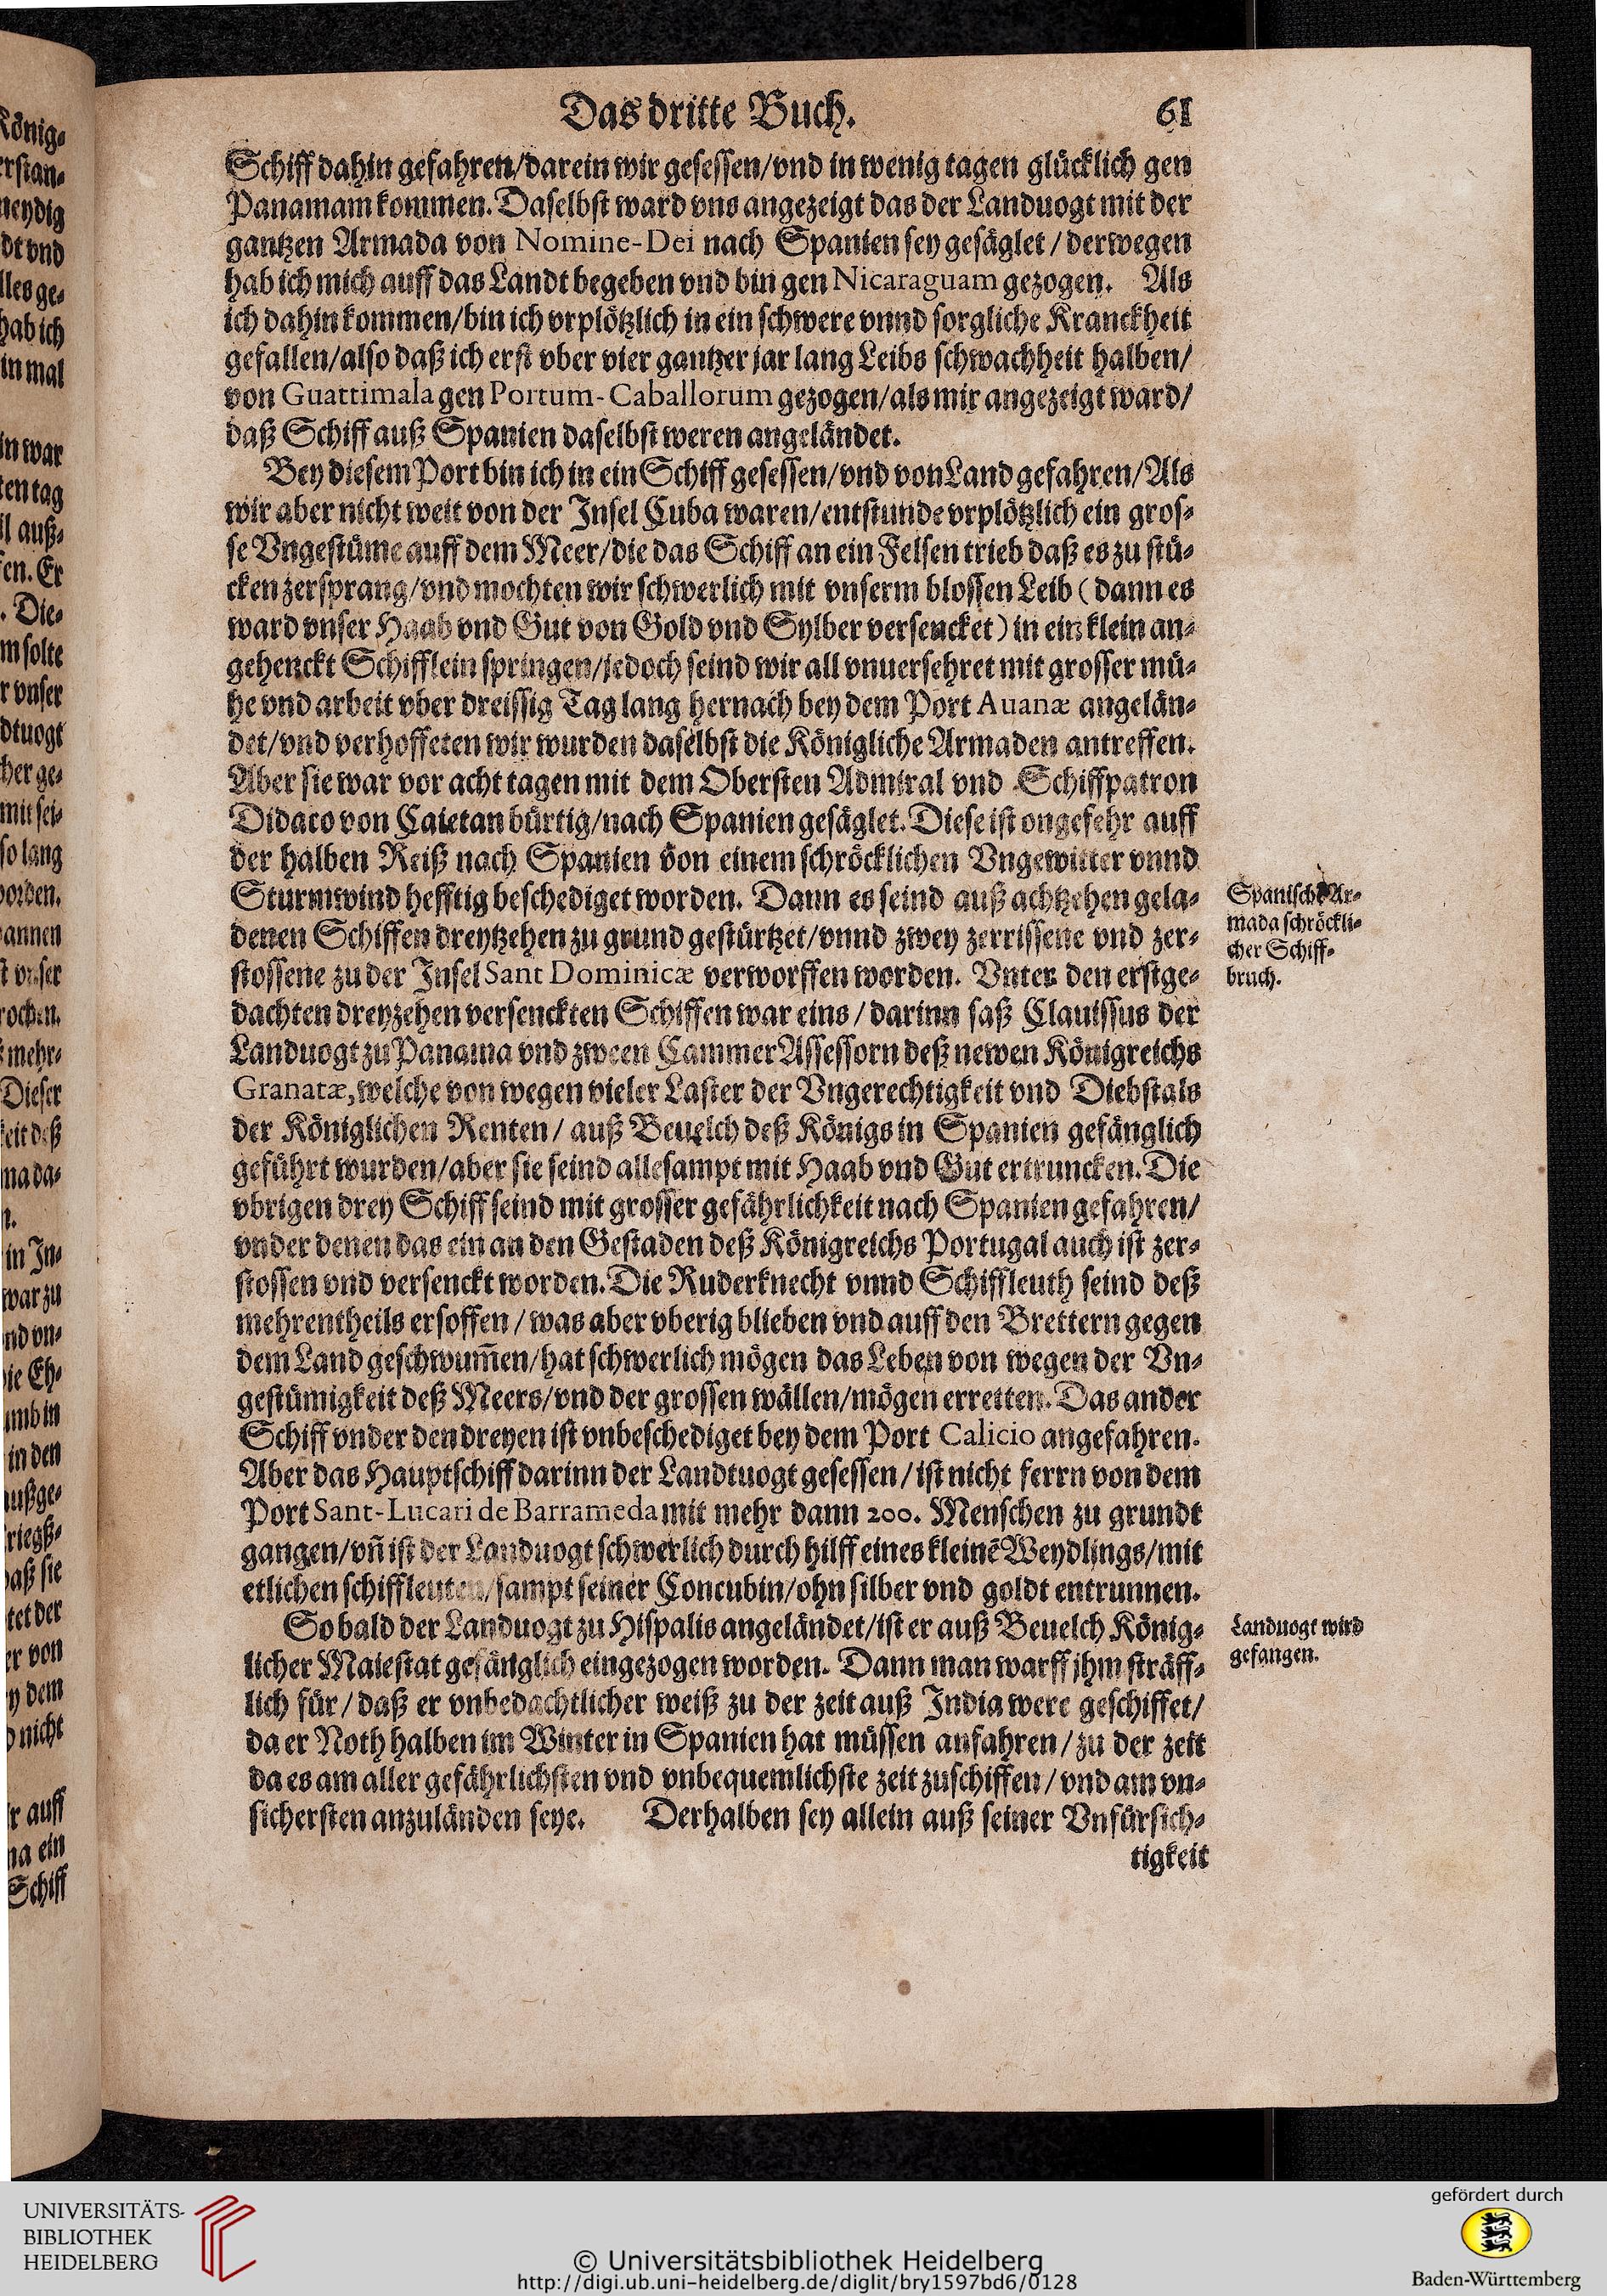 Das dritte Buch. 61
Schiff dahin gefahren/darein wir gesessen/vnd in wenig tagen glücklich gen
Panamam kommen. Daselbst ward vns angezeigt das der Landuogt mit der
gantzen Armada von Nomine-Dei nach Spanien sey gesäglet / derwegen
hab ich mich auff das Landt begeben vnd bin gen Nicaraguam gezogen. Als
ich dahin kommen/bin ich vrplötzlich in ein schwere vnnd sorgliche Kranckheit
gefallen/also daß ich erst vber vier gantzer jar lang Leibs schwachheit halben/
von Guattimala gen Portum-Caballorum gezogen/als mir angezeigt ward/
daß Schiff auß Spanien daselbst weren angeländet.
Bey diesem Port bin ich in ein Schiff gesessen/vnd von Land gefahren/Als
wir aber nicht weit von der Insel Cuba waren/entstunde vrplötzlich ein gros-
se Vngestüme auff dem Meer/die das Schiff an ein Felsen trieb daß es zu stü-
cken zersprang/vnd mochten wir schwerlich mit vnserm blossen Leib (dann es
ward vnser Haab vnd Gut von Gold vnd Sylber versencket) in ein klein an-
gehenckt Schifflein springen/jedoch seind wir all vnuersehret mit grosser mü-
he vnd arbeit vber dreissig Tag lang hernach bey dem Port Auanæ angelän-
det/vnd verhoffeten wir wurden daselbst die Königliche Armaden antreffen.
Aber sie war vor acht tagen mit dem Obersten Admiral vnd Schiffpatron
Didaco von Caietan bürtig/nach Spanien gesäglet. Diese ist ongefehr auff
der halben Reiß nach Spanien von einem schröcklichen Vngewitter vnnd
Sturmwind hefftig beschediget worden. Dann es seind auß achtzehen gela-
denen Schiffen dreytzehen zu grund gestürtzet/vnnd zwey zerrissene vnd zer-
stossene zu der Insel Sant Dominicæ verworffen worden. Vnter den erstge-
dachten dreyzehen versenckten Schiffen war eins / darinn saß Clauissus der
Landuogt zu Panama vnd zween Cammer Assessorn deß newen Königreichs
Granatæ, welche von wegen vieler Laster der Vngerechtigkeit vnd Diebstals
der Königlichen Renten / auß Beuelch deß Königs in Spanien gefänglich
geführt wurden/aber sie seind allesampt mit Haab vnd Gut ertruncken. Die
vbrigen drey Schiff seind mit grosser gefährlichkeit nach Spanien gefahren/
vnder denen das ein an den Gestaden deß Königreichs Portugal auch ist zer-
stossen vnd versenckt worden. Die Ruderknecht vnnd Schiffleuth seind deß
mehrentheils ersoffen / was aber vberig blieben vnd auff den Brettern gegen
dem Land geschwum̃en/hat schwerlich mögen das Leben von wegen der Vn-
gestümigkeit deß Meers/vnd der grossen wällen/mögen erretten. Das ander
Schiff vnder den dreyen ist vnbeschediget bey dem Port Calicio angefahren.
Aber das Hauptschiff darinn der Landtuogt gesessen / ist nicht ferrn von dem
Port Sant-Lucari de Barrameda mit mehr dann 200. Menschen zu grundt
gangen/vn̄ ist der Landuogt schwerlich durch hilff eines kleinē Weydlings/mit
etlichen schiffleuten/sampt seiner Concubin/ohn silber vnd goldt entrunnen.
So bald der Landuogt zu Hispalis angeländet/ist er auß Beuelch König-
licher Maiestat gefänglich eingezogen worden. Dann man warff jhm sträff-
lich für / daß er vnbedachtlicher weiß zu der zeit auß India were geschiffet/
da er Noth halben im Winter in Spanien hat müssen anfahren / zu der zeit
da es am aller gefährlichsten vnd vnbequemlichste zeit zuschiffen / vnd am vn-
sichersten anzuländen seye. Derhalben sey allein auß seiner Vnfürsich-
tigkeit
Spanische Ar-
mada schröckli-
cher Schiff-
bruch.
Landuogt wird
gefangen.
UNIVERSITÄTS-
BIBLIOTHEK
HEIDELBERG
© Universitätsbibliothek Heidelberg
http://digi.ub.uni-heidelberg.de/diglit/bry1597bd6/0128
gefördert durch
Baden-Württemberg